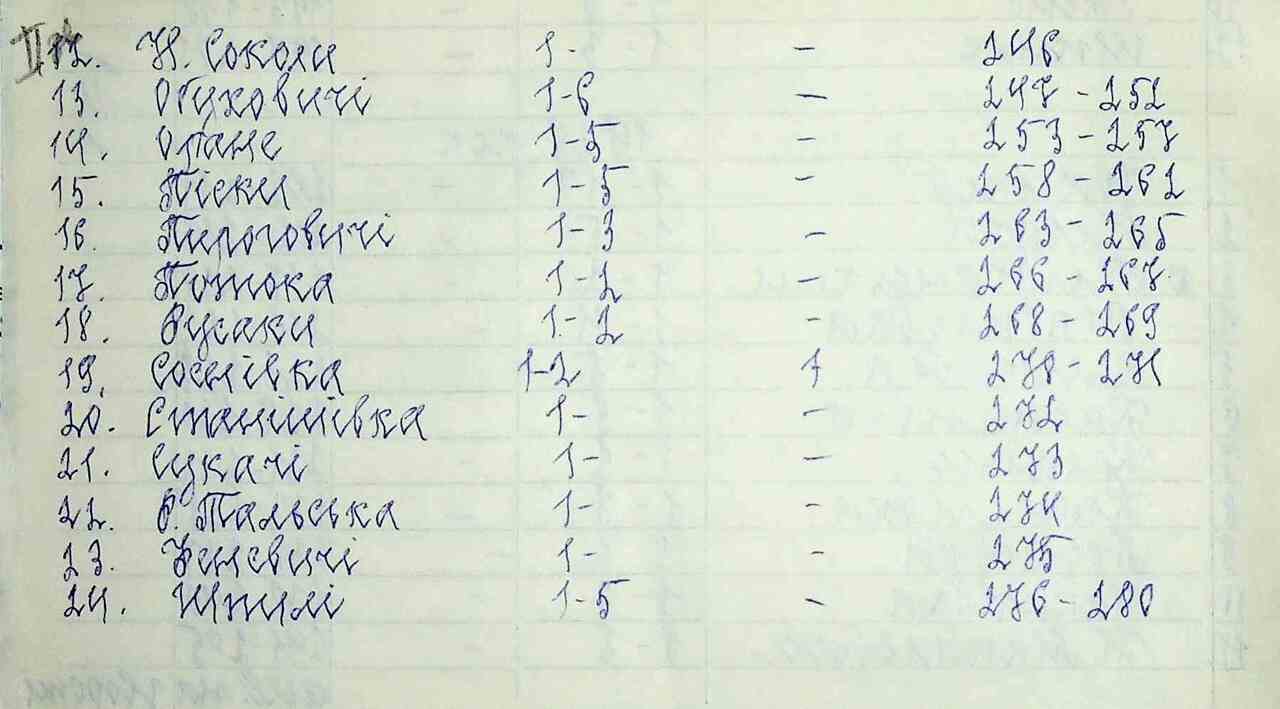 12. Н. Соколи 1- - 246
13. Обуховичі 1-6 - 247 - 252
14. Оране 1-5 - 253 - 257
15. Піски 1-5 - 258 - 262
16. Пироговичі 1-3 - 263 - 265
17. Потока 1-2 - 266 - 267
18. Русаки 1-2 - 268 - 269
19. Соснівка 1-2 1 270 - 271
20. Станішівка 1- - 272
21. Сукачі 1- - 273
22. Р. Тальська 1- - 274
23. Феневичі 1- - 275
24. Шпилі 1-5 - 276 - 280